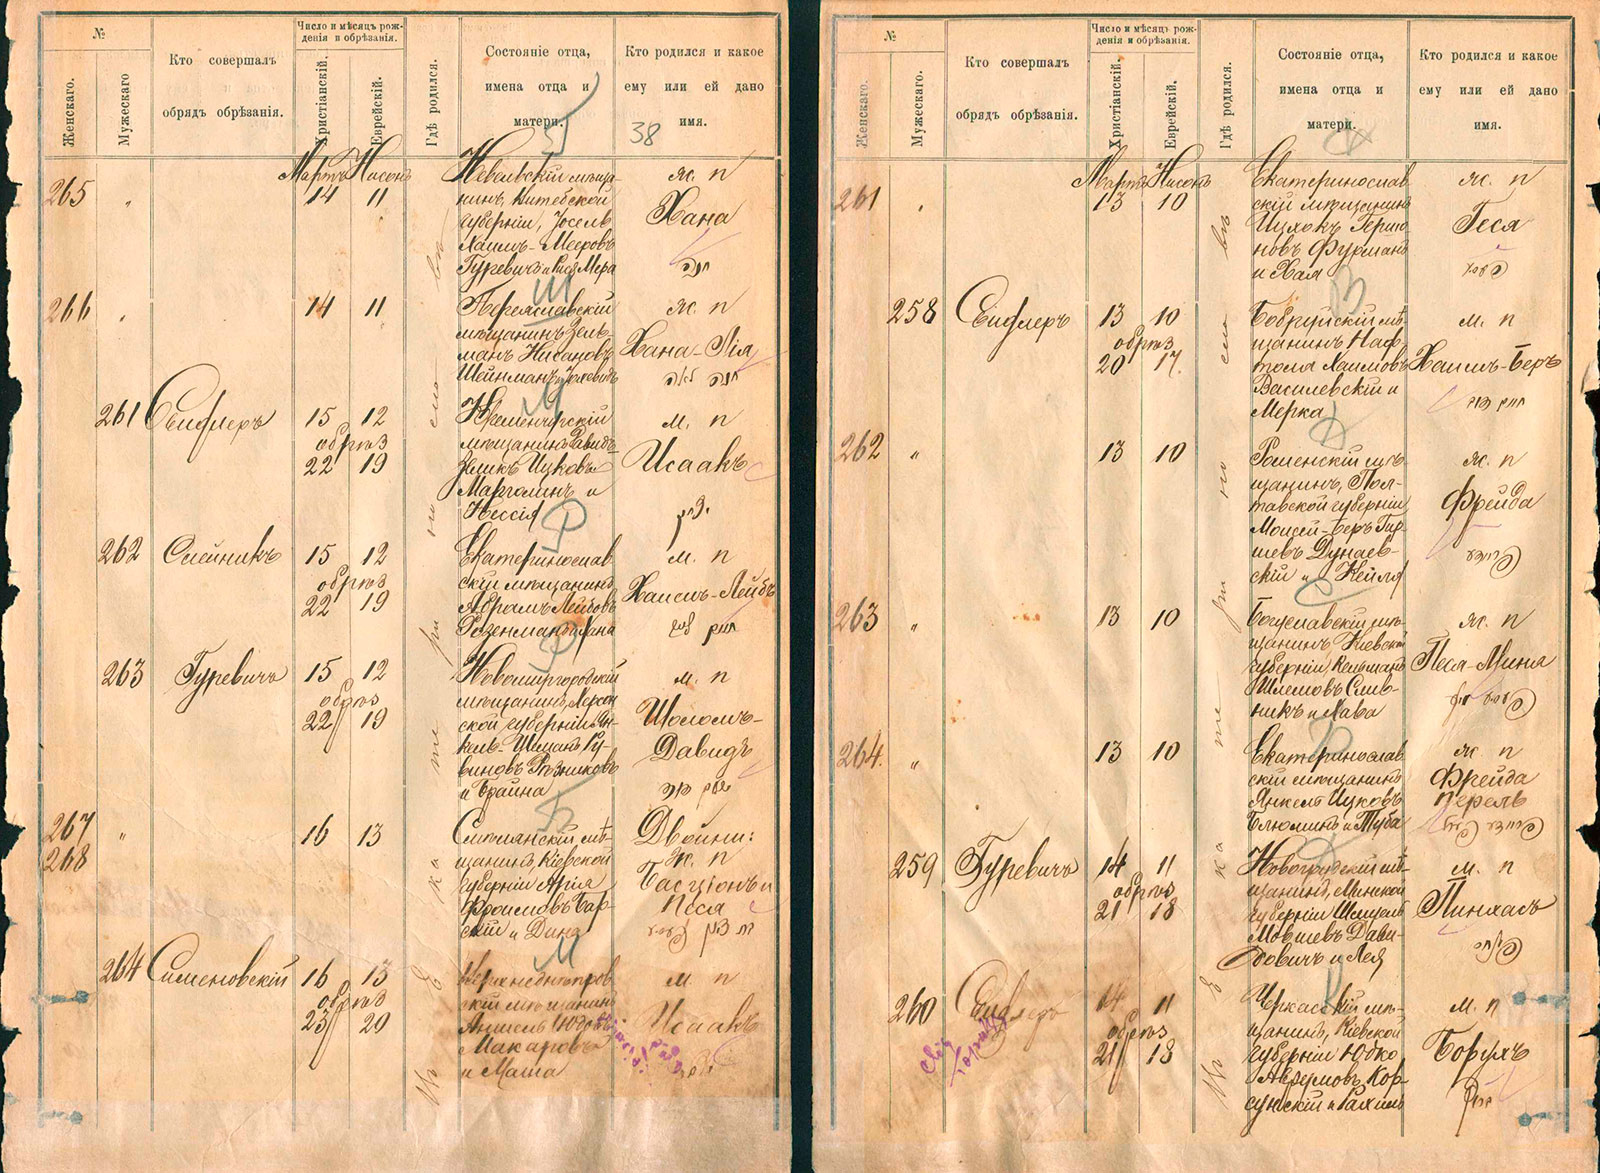 №
Женскаго.
Мужескаго
Кто совершалъ
обрядъ обрѣзанія.
Число и мѣсяцъ рож-
денія и обрѣзанія.
Христіанскій.
Еврейскій.
Гдѣ родился.
Состояніе отца,
имена отца и
матери.
Кто родился и какое
ему или ей дано
имя.
38
Мартъ Нисонъ
265
14 11
Невельскій мѣща-
нинъ, Витебской
губерніи, Іосель
Хаимъ-Мееровъ
Гуревичъ и Мера
ж. п
Хана
חנה
266
14 11
Переяславскій
мѣщанинъ Зель-
манъ Нисановъ
Шейнманъ и
ж. п
Хана-Лія
חנה לאה
261 Сейфлеръ
15 12
обрѣз
22 19
Кременчугскій
мѣщанинъ
Зеликъ Ицковъ
Марголинъ и
Нессія
м. п
Исаакъ
יצחק
262 Слѣйникъ
15 12
обрѣз
22 19
Екатеринослав
скій мѣщанинъ
Абрамъ Лейбовъ
Розенманъ и Хана
м. п
Хаимъ-Лейбъ
חיים לייב
263 Гуревичъ
15 12
обрѣз
22 19
Новомиргородскій
мѣщанинъ, Херсон
ской губерніи Ян-
кель-Шмаи Ру-
виновъ Рѣзниковъ
и Брайна
м. п
Шоломъ-
Давидъ
שלום דוד
267
268
16 13
Смѣлянскій мѣ-
щанинъ Кіевской
губерніи Арія
Фроимовъ Бар-
скій и Дина
Двойни:
ж. п
Басціонъ и
Песя
264 Сименовскій
16 13
обрѣз
23 20
Верхнеднѣпров
скій мѣщанинъ
Аншель Юдовъ
Макаровъ
и Маша
м. п
Исаакъ
Въ Екате
№
Женскаго.
Мужескаго.
Кто совершалъ
обрядъ обрѣзанія.
Число и мѣсяцъ рож-
денія и обрѣзанія.
Христіанскій.
Еврейскій.
Гдѣ родился.
Состояніе отца,
имена отца и
матери.
Кто родился и какое
ему или ей дано
имя.
Мартъ Нисонъ
261
13 10
Екатеринослав
скій мѣщанинъ
Ицхокъ Гершо
новъ Фурманъ
и Хая
ж. п
Геся
258 Сейфлеръ
13 10
обрѣз
20 17.
Бобруйскій мѣ-
щанинъ Наф-
толя Хаимовъ
Василевскій и
Мерка
м. п
Хаимъ-Беръ
262
13 10
Роменскій мѣ-
щанинъ, Пол-
тавской губерніи
Моисей-Беръ Гир
шевъ Дунаев-
скій и Кейля
ж. п
Фрейда
263
13 10
Богуславскій мѣ-
щанинъ Кіевской
губерніи, Кельманъ
Шлемовъ Слив-
никъ и Хава
ж. п
Песя-Миня
264.
13 10
Екатеринослав
скій мѣщанинъ
Янкель Ицковъ
Блюминъ и Туба
ж. п
Фрейда
Перель
259 Гуревичъ
14 11
обрѣз
21 18
Новогрудскій мѣ-
щанинъ, Минской
губерніи Шмуель
Мовшевъ Дави-
довичъ и Лея
м. п
Пинхасъ
260
14 11
обрѣз
21 18
Черкасскій мѣ-
щанинъ, Кіевской
губерніи Юдко
Аврумовъ Кор-
сунскій и Рахиль
м. п
Борухъ
ברוך
Въ Екате